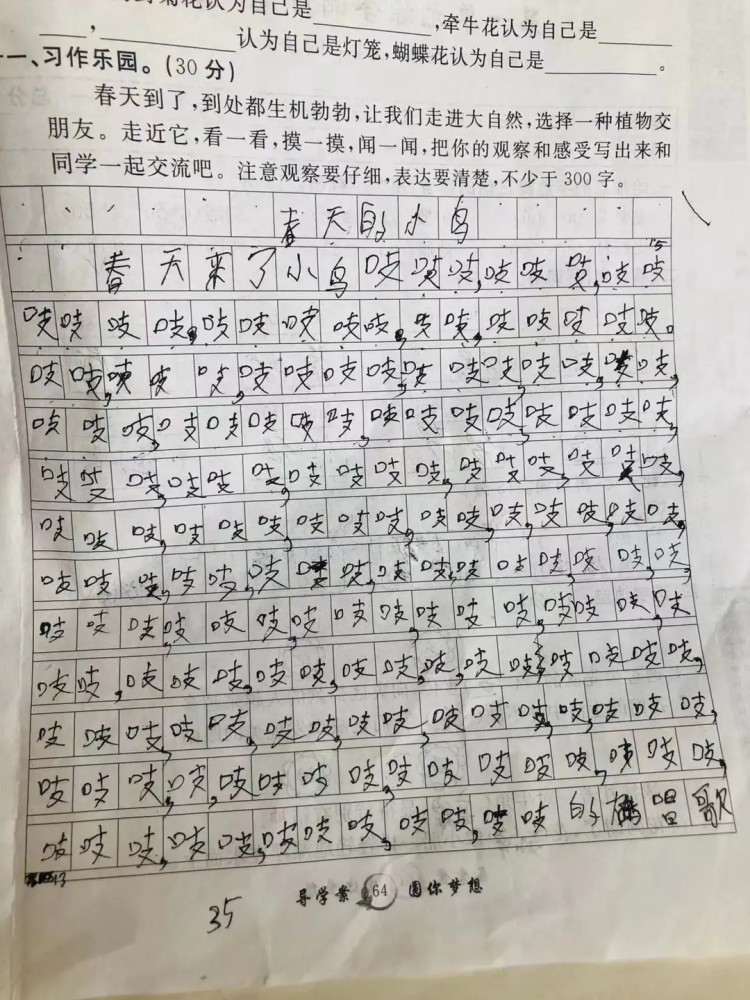 花认为自己是________,牵牛花认为自己是________
____,________认为自己是灯笼,蝴蝶花认为自己是________。
一、习作乐园。(30分)
春天到了,到处都生机勃勃,让我们走进大自然,选择一种植物交
朋友。走近它,看一看,摸一摸,闻一闻,把你的观察和感受写出来和
同学一起交流吧。注意观察要仔细,表达要清楚,不少于300字。
春天的小鸟
15
春天来了小鸟吱吱吱,吱吱吱,吱吱
吱吱吱吱,吱吱吱吱吱,吱吱,吱吱吱吱吱。
吱吱,吱吱吱,吱吱吱吱,吱吱吱,吱吱,吱吱,
吱吱吱,吱吱吱吱吱,吱吱吱吱,吱吱吱吱,
吱吱吱,吱吱吱,吱吱吱吱,吱吱吱,吱吱吱,
吱吱吱,吱吱吱,吱吱吱,吱吱,吱吱吱,吱吱,
吱吱吱,吱吱吱,吱吱,吱吱,吱吱吱吱,吱吱,
吱吱吱,吱吱吱,吱吱吱,吱吱吱,吱吱吱,吱
吱吱,吱吱吱,吱吱,吱吱,吱吱吱,吱吱吱吱,
吱吱吱,吱吱,吱吱,吱吱,吱吱吱,吱,吱吱吱,
吱吱吱,吱,吱吱吱吱,吱吱吱吱吱,吱吱吱,
吱吱吱,吱吱,吱吱吱,吱吱,吱吱的唱歌
导学案 64 圆你梦想
35